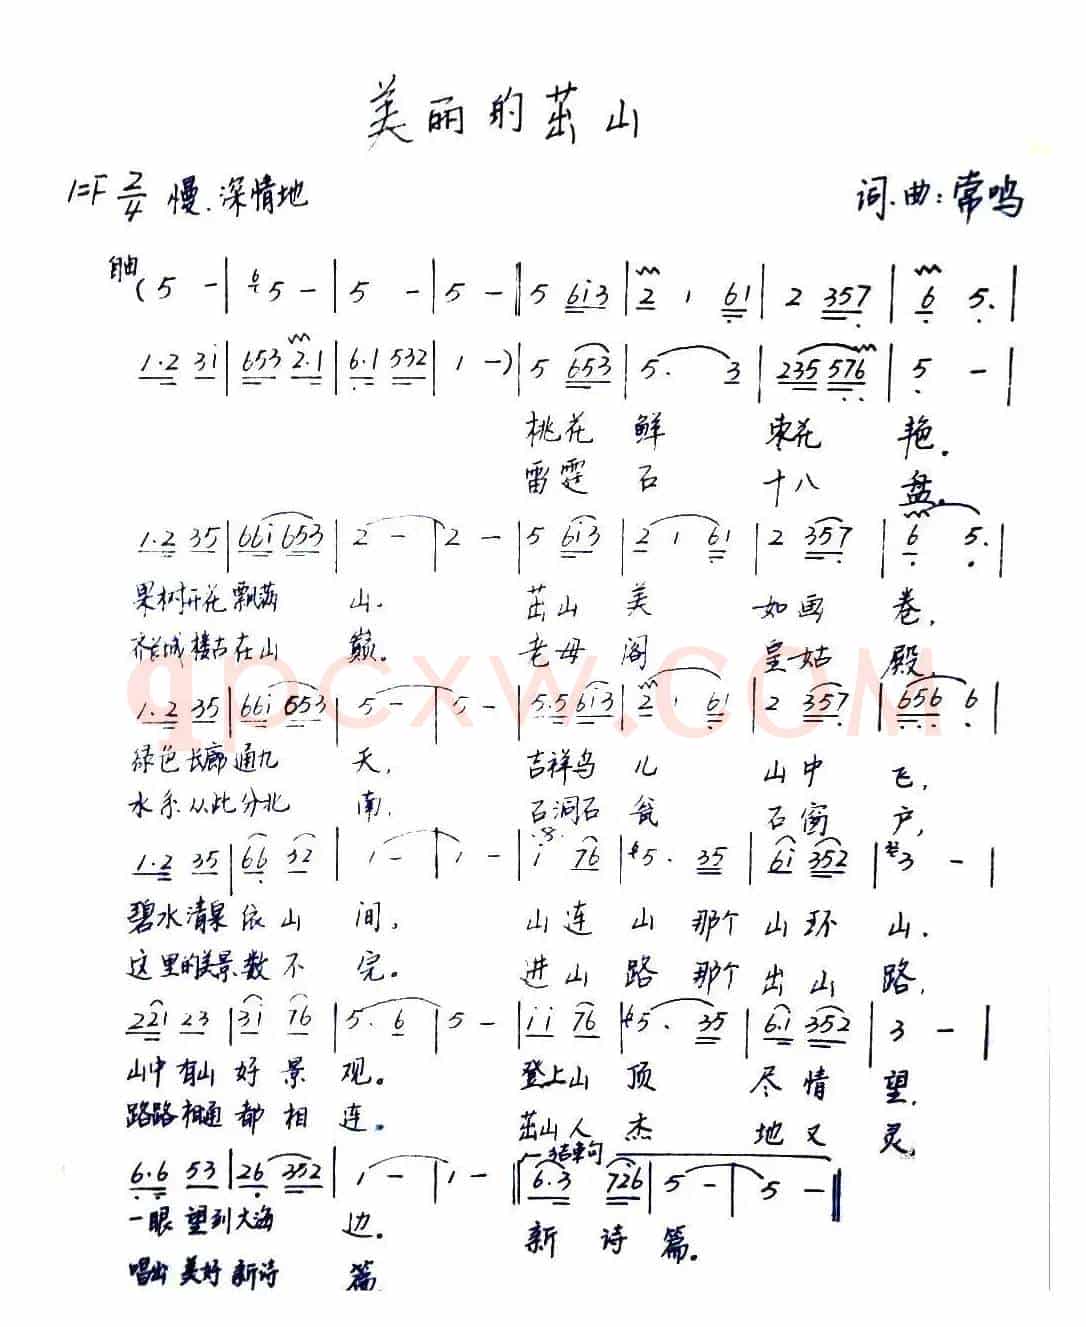 美丽的茁山
1=F 2/4 慢.深情地 词.曲:常鸣
自由
(5 - | 6 5 - | 5 - | 5 - ‖ 5 6i3 | 2 1 61 | 2 357 | 6 5. |
1.2 3i | 653 2.1 | 6.1 532 | 1 -) | 5 653 | 5. 3 | 235 576 | 5 - |
桃花 鲜 枣花 艳.
雷霆 石 十八 盘.
1.2 35 | 66i 653 | 2 - | 2 - | 5 6i3 | 2 1 61 | 2 357 | 6 5. |
果树开花飘满 山. 茁山 美 如画 卷,
齐长城楼古在山 巅。 老母 阁 皇姑 殿,
qpcxw.com
1.2 35 | 66i 653 | 5 - | 5 - | 5.5 6i3 | 2 1 61 | 2 357 | 656 6 |
绿色长廊通九 天, 吉祥鸟 儿 山中 飞,
水系从此分北 南, 石洞石 瓮 石窗 户,
1.2 35 | 66 32 | 1 - | 1 - | i 76 | #5. 35 | 6i 352 | 3 - |
碧水清泉依山 间, 山连 山 那个 山环 山.
这里的美景数不 完。 进山 路 那个 出山 路,
221 23 | 3i 76 | 5. 6 | 5 - | ii 76 | #5. 35 | 6.1 352 | 3 - |
山中有山好景 观。 登上山 顶 尽情 望,
路路相通都相 连。 茁山人 杰 地又 灵,
结束句
6.6 53 | 26 352 | 1 - | 1 - ‖ 6.3 726 | 5 - | 5 - ‖
一眼望到大海 边. 新诗篇.
唱出美好新诗 篇